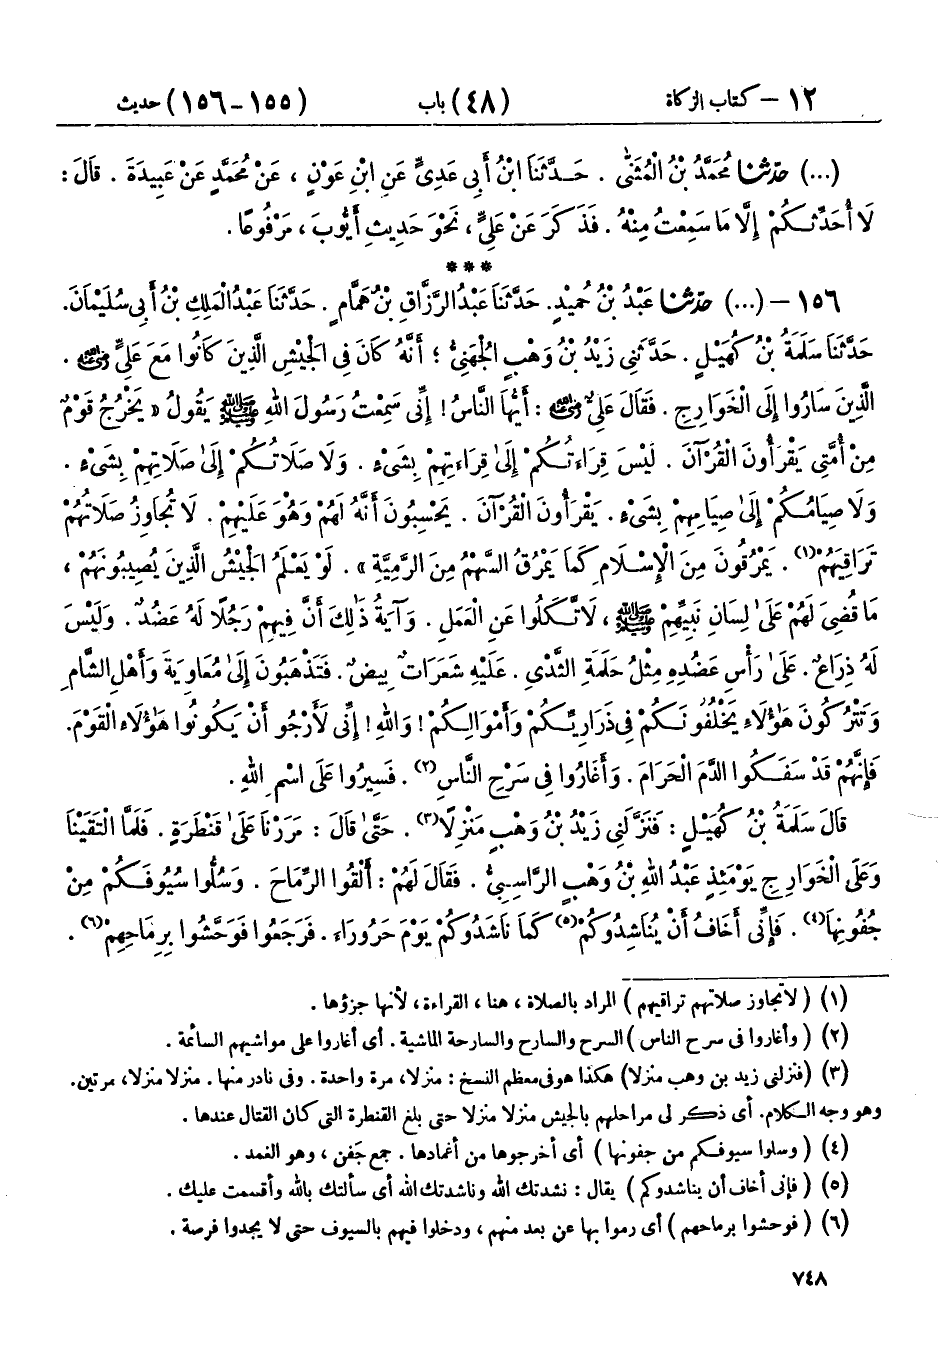 ١٢ – كتاب الزكاة (٤٨) باب (١٥٥-١٥٦) حديث
(...) حَدَّثَنَا مُحَمَّدُ بْنُ الْمُثَنَّى . حَدَّثَنَا ابْنُ أَبِي عَدِيٍّ عَنِ ابْنِ عَوْنٍ ، عَنْ مُحَمَّدٍ عَنْ عَبِيدَةَ . قَالَ :
لَا أُحَدِّثُكُمْ إِلَّا مَا سَمِعْتُ مِنْهُ . فَذَكَرَ عَنْ عَلِيٍّ ، نَحْوَ حَدِيثِ أَيُّوبَ ، مَرْفُوعًا .
***
١٥٦ – (...) حَدَّثَنَا عَبْدُ بْنُ حُمَيْدٍ. حَدَّثَنَا عَبْدُ الرَّزَّاقِ بْنُ هَمَّامٍ . حَدَّثَنَا عَبْدُ الْمَلِكِ بْنُ أَبِي سُلَيْمَانَ.
حَدَّثَنَا سَلَمَةُ بْنُ كُهَيْلٍ . حَدَّثَنِي زَيْدُ بْنُ وَهْبٍ الْجُهَنِيُّ ؛ أَنَّهُ كَانَ فِي الْجَيْشِ الَّذِينَ كَانُوا مَعَ عَلِيٍّ رضي الله عنه .
الَّذِينَ سَارُوا إِلَى الْخَوَارِجِ . فَقَالَ عَلِيٌّ رضي الله عنه : أَيُّهَا النَّاسُ ! إِنِّي سَمِعْتُ رَسُولَ اللهِ ﷺ يَقُولُ « يَخْرُجُ قَوْمٌ
مِنْ أُمَّتِي يَقْرَأُونَ الْقُرْآنَ . لَيْسَ قِرَاءَتُكُمْ إِلَىٰ قِرَاءَتِهِمْ بِشَيْءٍ . وَلَا صَلَاتُكُمْ إِلَىٰ صَلَاتِهِمْ بِشَيْءٍ .
وَلَا صِيَامُكُمْ إِلَىٰ صِيَامِهِمْ بِشَيْءٍ . يَقْرَأُونَ الْقُرْآنَ . يَحْسِبُونَ أَنَّهُ لَهُمْ وَهُوَ عَلَيْهِمْ . لَا تُجَاوِزُ صَلَاتُهُمْ
تَرَاقِيَهُمْ(١) . يَمْرُقُونَ مِنَ الْإِسْلَامِ كَمَا يَمْرُقُ السَّهْمُ مِنَ الرَّمِيَّةِ » . لَوْ يَعْلَمُ الْجَيْشُ الَّذِينَ يُصِيبُونَهُمْ ،
مَا قُضِيَ لَهُمْ عَلَىٰ لِسَانِ نَبِيِّهِمْ ﷺ ، لَاتَّكَلُوا عَنِ الْعَمَلِ . وَآيَةُ ذَٰلِكَ أَنَّ فِيهِمْ رَجُلًا لَهُ عَضُدٌ . وَلَيْسَ
لَهُ ذِرَاعٌ . عَلَىٰ رَأْسِ عَضُدِهِ مِثْلُ حَلَمَةِ الثَّدْيِ . عَلَيْهِ شَعَرَاتٌ بِيضٌ . فَتَذْهَبُونَ إِلَىٰ مُعَاوِيَةَ وَأَهْلِ الشَّامِ
وَتَتْرُكُونَ هَٰؤُلَاءِ يَخْلُفُونَكُمْ فِي ذَرَارِيِّكُمْ وَأَمْوَالِكُمْ ! وَاللهِ ! إِنِّي لَأَرْجُو أَنْ يَكُونُوا هَٰؤُلَاءِ الْقَوْمَ.
فَإِنَّهُمْ قَدْ سَفَكُوا الدَّمَ الْحَرَامَ . وَأَغَارُوا فِي سَرْحِ النَّاسِ(٢) . فَسِيرُوا عَلَى اسْمِ اللهِ .
قَالَ سَلَمَةُ بْنُ كُهَيْلٍ : فَنَزَّلَنِي زَيْدُ بْنُ وَهْبٍ مَنْزِلًا(٣) . حَتَّىٰ قَالَ : مَرَرْنَا عَلَىٰ قَنْطَرَةٍ . فَلَمَّا الْتَقَيْنَا
وَعَلَى الْخَوَارِجِ يَوْمَئِذٍ عَبْدُ اللهِ بْنُ وَهْبٍ الرَّاسِبِيُّ . فَقَالَ لَهُمْ : أَلْقُوا الرِّمَاحَ . وَسُلُّوا سُيُوفَكُمْ مِنْ
جُفُونِهَا(٤) . فَإِنِّي أَخَافُ أَنْ يُنَاشِدُوكُمْ(٥) كَمَا نَاشَدُوكُمْ يَوْمَ حَرُورَاءَ . فَرَجَعُوا فَوَحَّشُوا بِرِمَاحِهِمْ(٦) .
(١) ( لا تجاوز صلاتهم تراقيهم ) المراد بالصلاة ، هنا ، القراءة ، لأنها جزؤها .
(٢) ( وأغاروا في سرح الناس ) السرح والسارح والسارحة الماشية . أي أغاروا على مواشيهم السائمة .
(٣) (فنزلني زيد بن وهب منزلا) هكذا هو في معظم النسخ : منزلا، مرة واحدة . وفي نادر منها . منزلا منزلا، مرتين.
وهو وجه الكلام. أي ذكر لي مراحلهم بالجيش منزلا منزلا حتى بلغ القنطرة التي كان القتال عندها .
(٤) ( وسلوا سيوفكم من جفونها ) أي أخرجوها من أغمادها . جمع جَفن ، وهو الغمد .
(٥) ( فإني أخاف أن يناشدوكم ) يقال : نشدتك الله وناشدتك الله أي سألتك بالله وأقسمت عليك .
(٦) ( فوحشوا برماحهم ) أي رموا بها عن بعد منهم ، ودخلوا فيهم بالسيوف حتى لا يجدوا فرصة .
٧٤٨